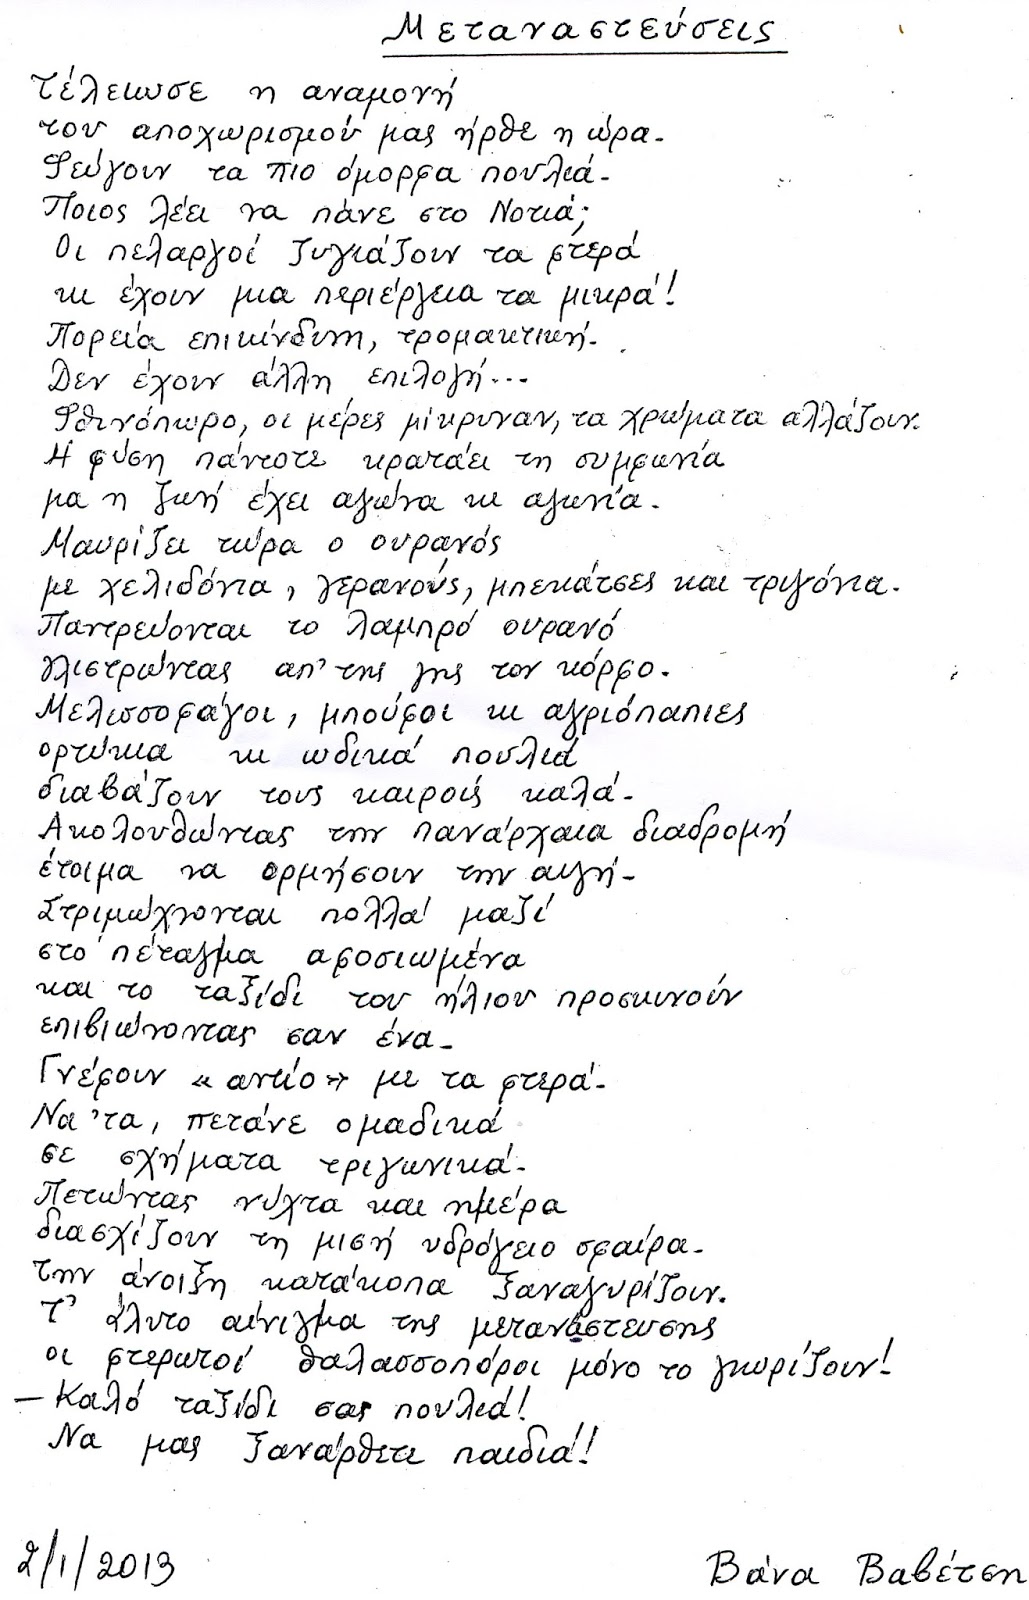 Μεταναστεύσεις
Τέλειωσε η αναμονή
του αποχωρισμού μας ήρθε η ώρα.
Φεύγουν τα πιο όμορφα πουλιά.
Ποιος λέει να πάνε στο Νοτιά;
Οι πελαργοί ζυγιάζουν τα φτερά
κι έχουν μια περιέργεια τα μικρά!
Πορεία επικίνδυνη, τρομακτική.
Δεν έχουν άλλη επιλογή...
Φθινόπωρο, οι μέρες μίκρυναν, τα χρώματα αλλάζουν.
Η φύση πάντοτε κρατάει τη συμφωνία
μα η ζωή έχει αγώνα κι αγωνία.
Μαυρίζει τώρα ο ουρανός
με χελιδόνια, γερανούς, μπεκάτσες και τριγόνια.
Παντρεύονται το λαμπρό ουρανό
γλιστρώντας απ' της γης τον κόρφο.
Μελισσοφάγοι, μπούφοι κι αγριόπαπιες
ορτύκια κι ωδικά πουλιά
διαβάζουν τους καιρούς καλά.
Ακολουθώντας την πανάρχαια διαδρομή
έτοιμα να ορμήσουν την αυγή.
Στριμώχνονται πολλά μαζί
στο πέταγμα αφοσιωμένα
και το ταξίδι του ήλιου προσκυνούν
επιβιώνοντας σαν ένα.
Γνέφουν «αντίο» με τα φτερά.
Να 'τα, πετάνε ομαδικά
σε σχήματα τριγωνικά.
Πετώντας νύχτα και ημέρα
διασχίζουν τη μισή υδρόγειο σφαίρα.
την άνοιξη κατάκοπα ξαναγυρίζουν.
Τ' άλυτο αίνιγμα της μετανάστευσης
οι φτερωτοί θαλασσοπόροι μόνο το γνωρίζουν!
– Καλό ταξίδι σας πουλιά!
Να μας ξανάρθετε παιδιά!
2/1/2013 Βάνα Βαβέτση